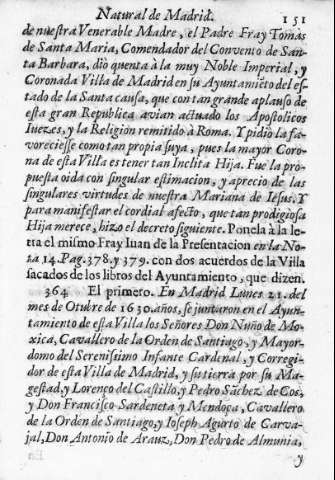 Natural de Madrid. 151
de nuestra Venerable Madre, el Padre Fray Tomàs
de Santa Maria, Comendador del Convento de San-
ta Barbara, diò quenta à la muy Noble Imperial, y
Coronada Villa de Madrid en su Ayuntamiẽto del es-
tado de la Santa causa, que con tan grande aplauso de
esta gran Republica avian actuado los Apostolicos
Iuezes, y la Religiòn remitido à Roma. Y pidio la fa-
voreciesse como tan propia suya, pues la mayor Coro-
na de esta Villa es tener tan Inclita Hija. Fue la pro-
puesta oida con singular estimacion, y aprecio de las
singulares virtudes de nuestra Mariana de Iesus. Y
para manifestar el cordial afecto, que tan prodigiosa
Hija merece, hizo el decreto siguiente. Ponela à la le-
tra el mismo Fray Iuan de la Presentacion en la No-
ta 14. Pag. 378. y 379. con dos acuerdos de la Villa
sacados de los libros del Ayuntamiento, que dizen.
364 El primero. En Madrid Lunes 21. del
mes de Otubre de 1630. años, se juntaron en el Ayun-
tamiento de esta Villa los Señores Don Nuño de Mo-
xica, Cavallero de la Orden de Santiago, y Mayor-
domo del Serenissimo Infante Cardenal, y Corregi-
dor de esta Villa de Madrid, y su tierra por su Ma-
gestad, y Lorenço del Castillo, y Pedro Sãchez de Cos,
y Don Francisco Sardeneta y Mendoça, Cavallero
de la Orden de Santiago, y Ioseph Agurto de Carva-
jal, Don Antonio de Arauz, Don Pedro de Almunia,
y